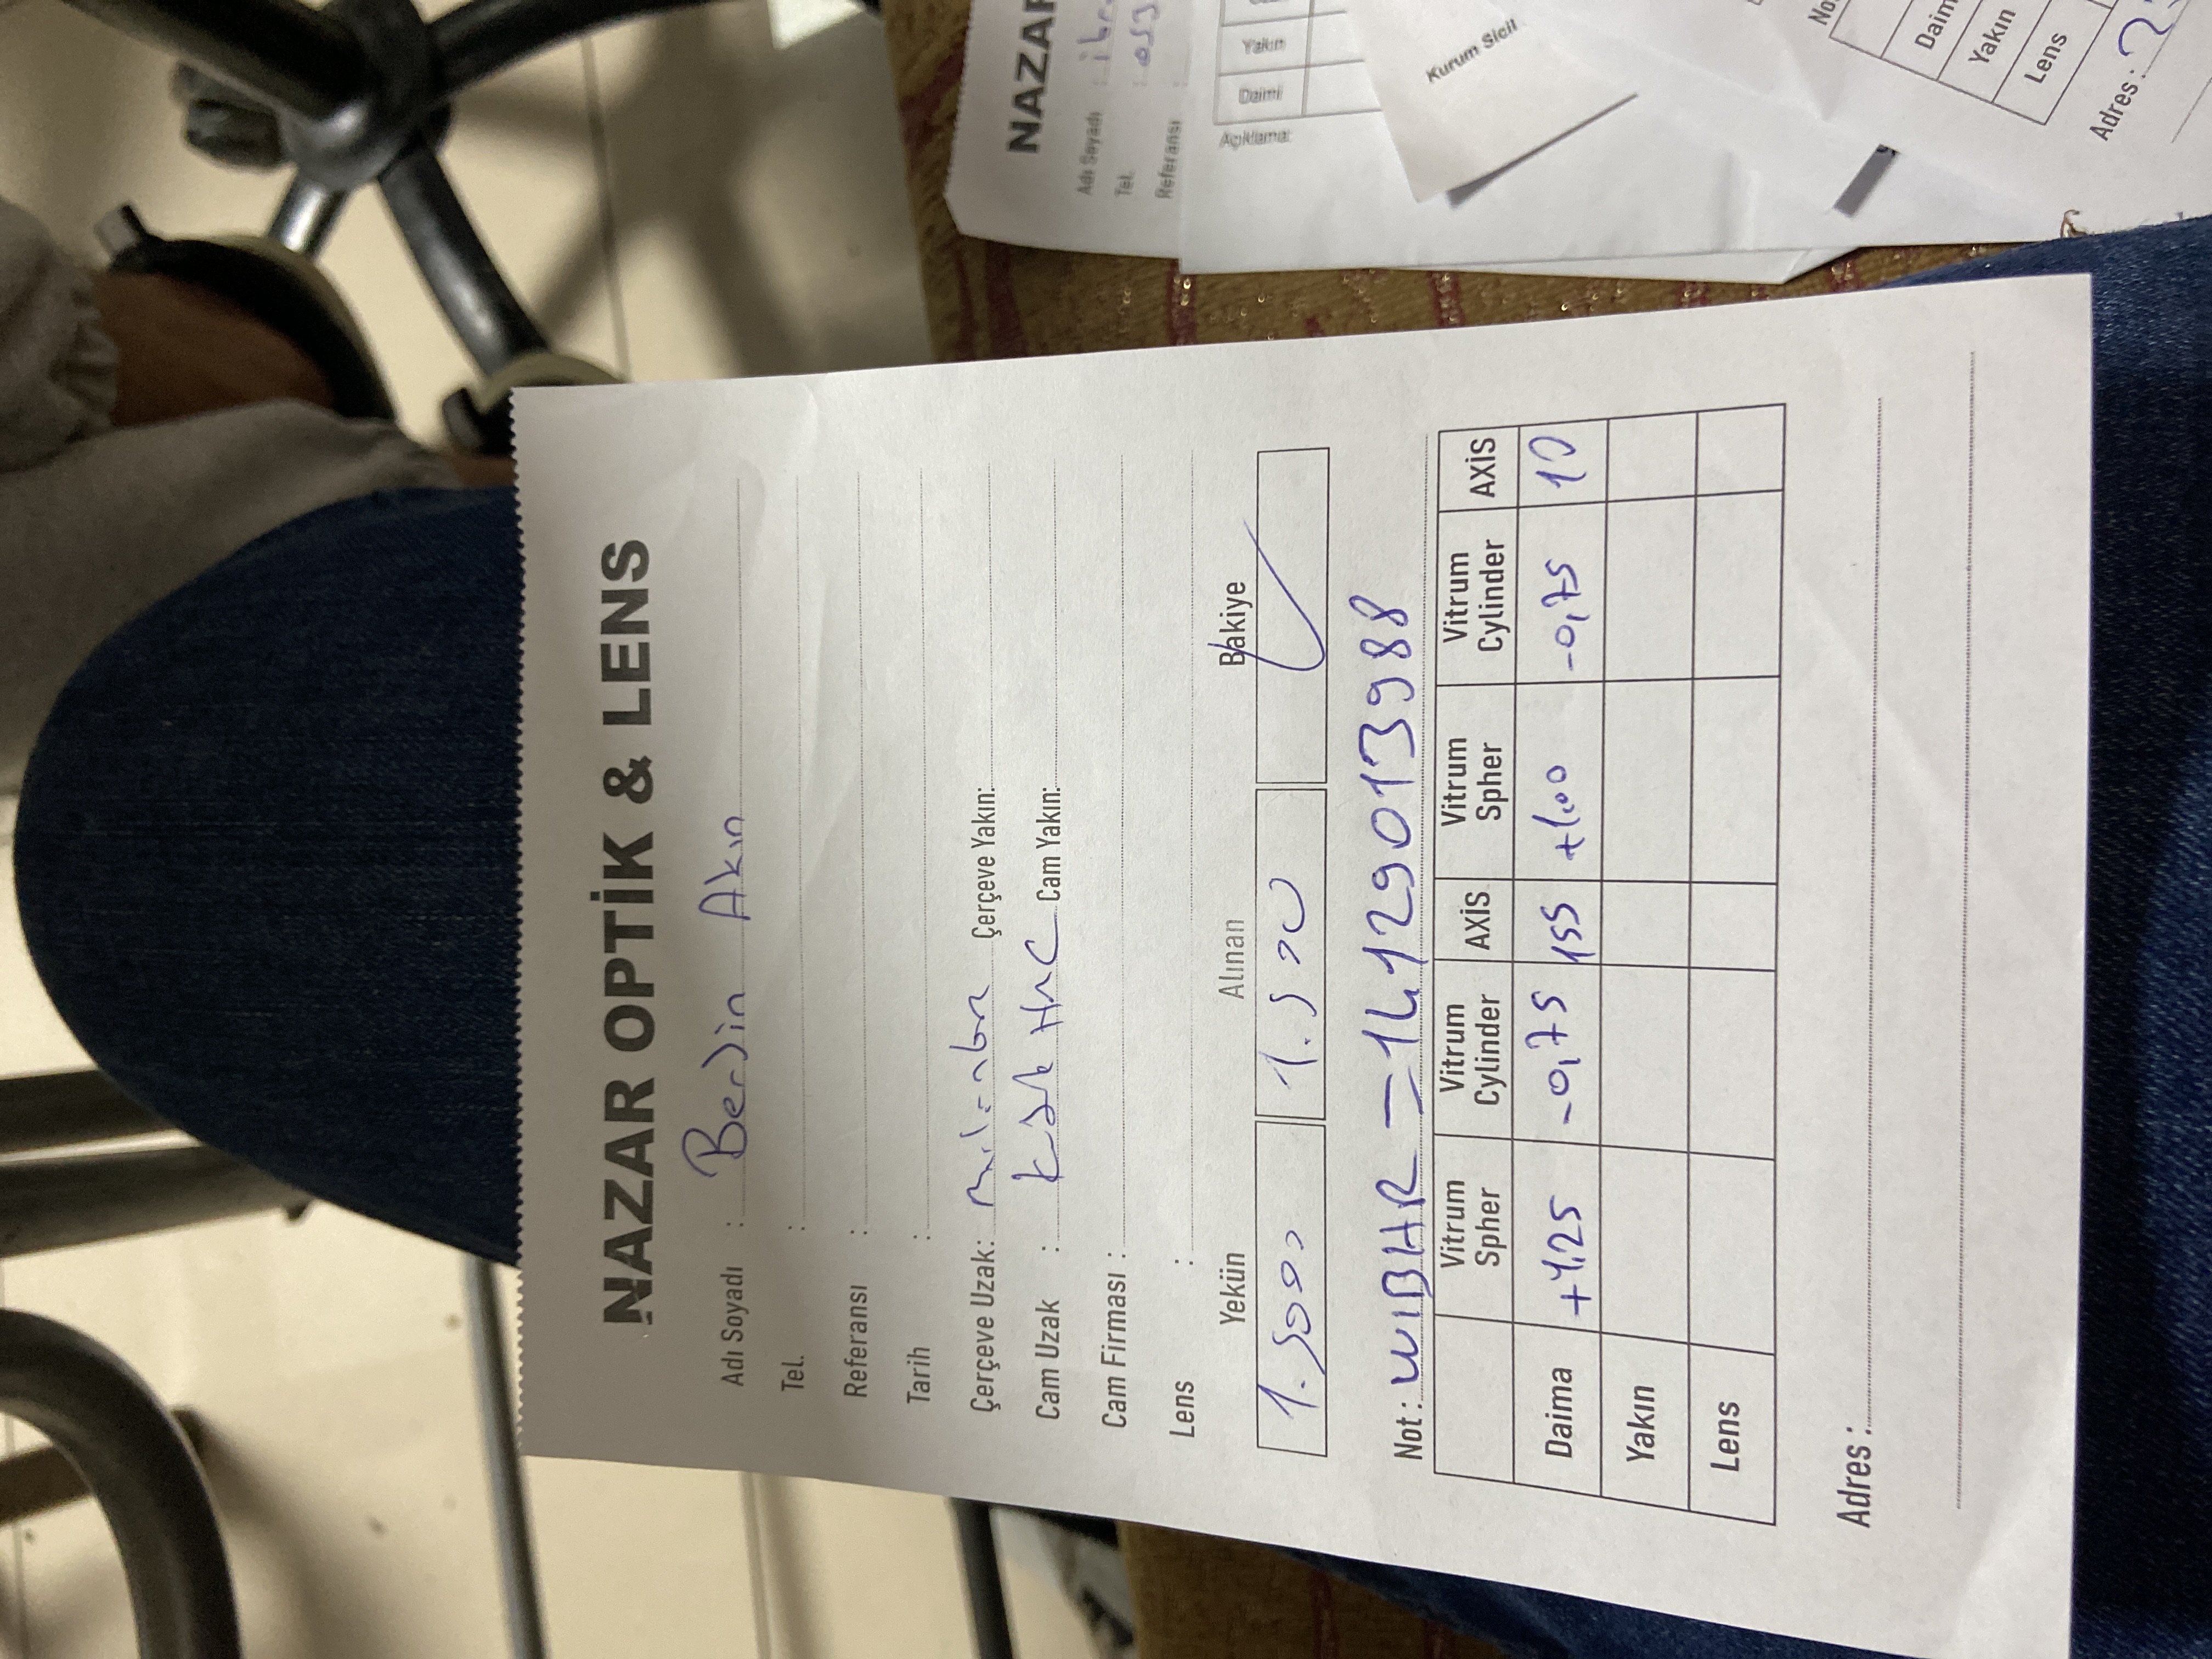 NAZAR OPTİK & LENS
Adı Soyadı : Berjin Akın
Tel. :
Referansı :
Tarih :
Çerçeve Uzak: Çerçeve Yakın:
Cam Uzak : Cam Yakın:
Cam Firması :
Lens :
Yekün Alınan Bakiye
1.5000 1.500
Not: WIBHR = 14129013988
Vitrum Spher Vitrum Cylinder AXİS Vitrum Spher Vitrum Cylinder AXİS
Daima +1.25 -0,75 155 +1.00 -0,75 10
Yakın
Lens
Adres :
NAZAR
Adı Soyadı :
Tel. : 053
Referansı :
Açıklama
Daimi
Yakın
Kurum Sicil
No
Daim
Yakın
Lens
Adres :